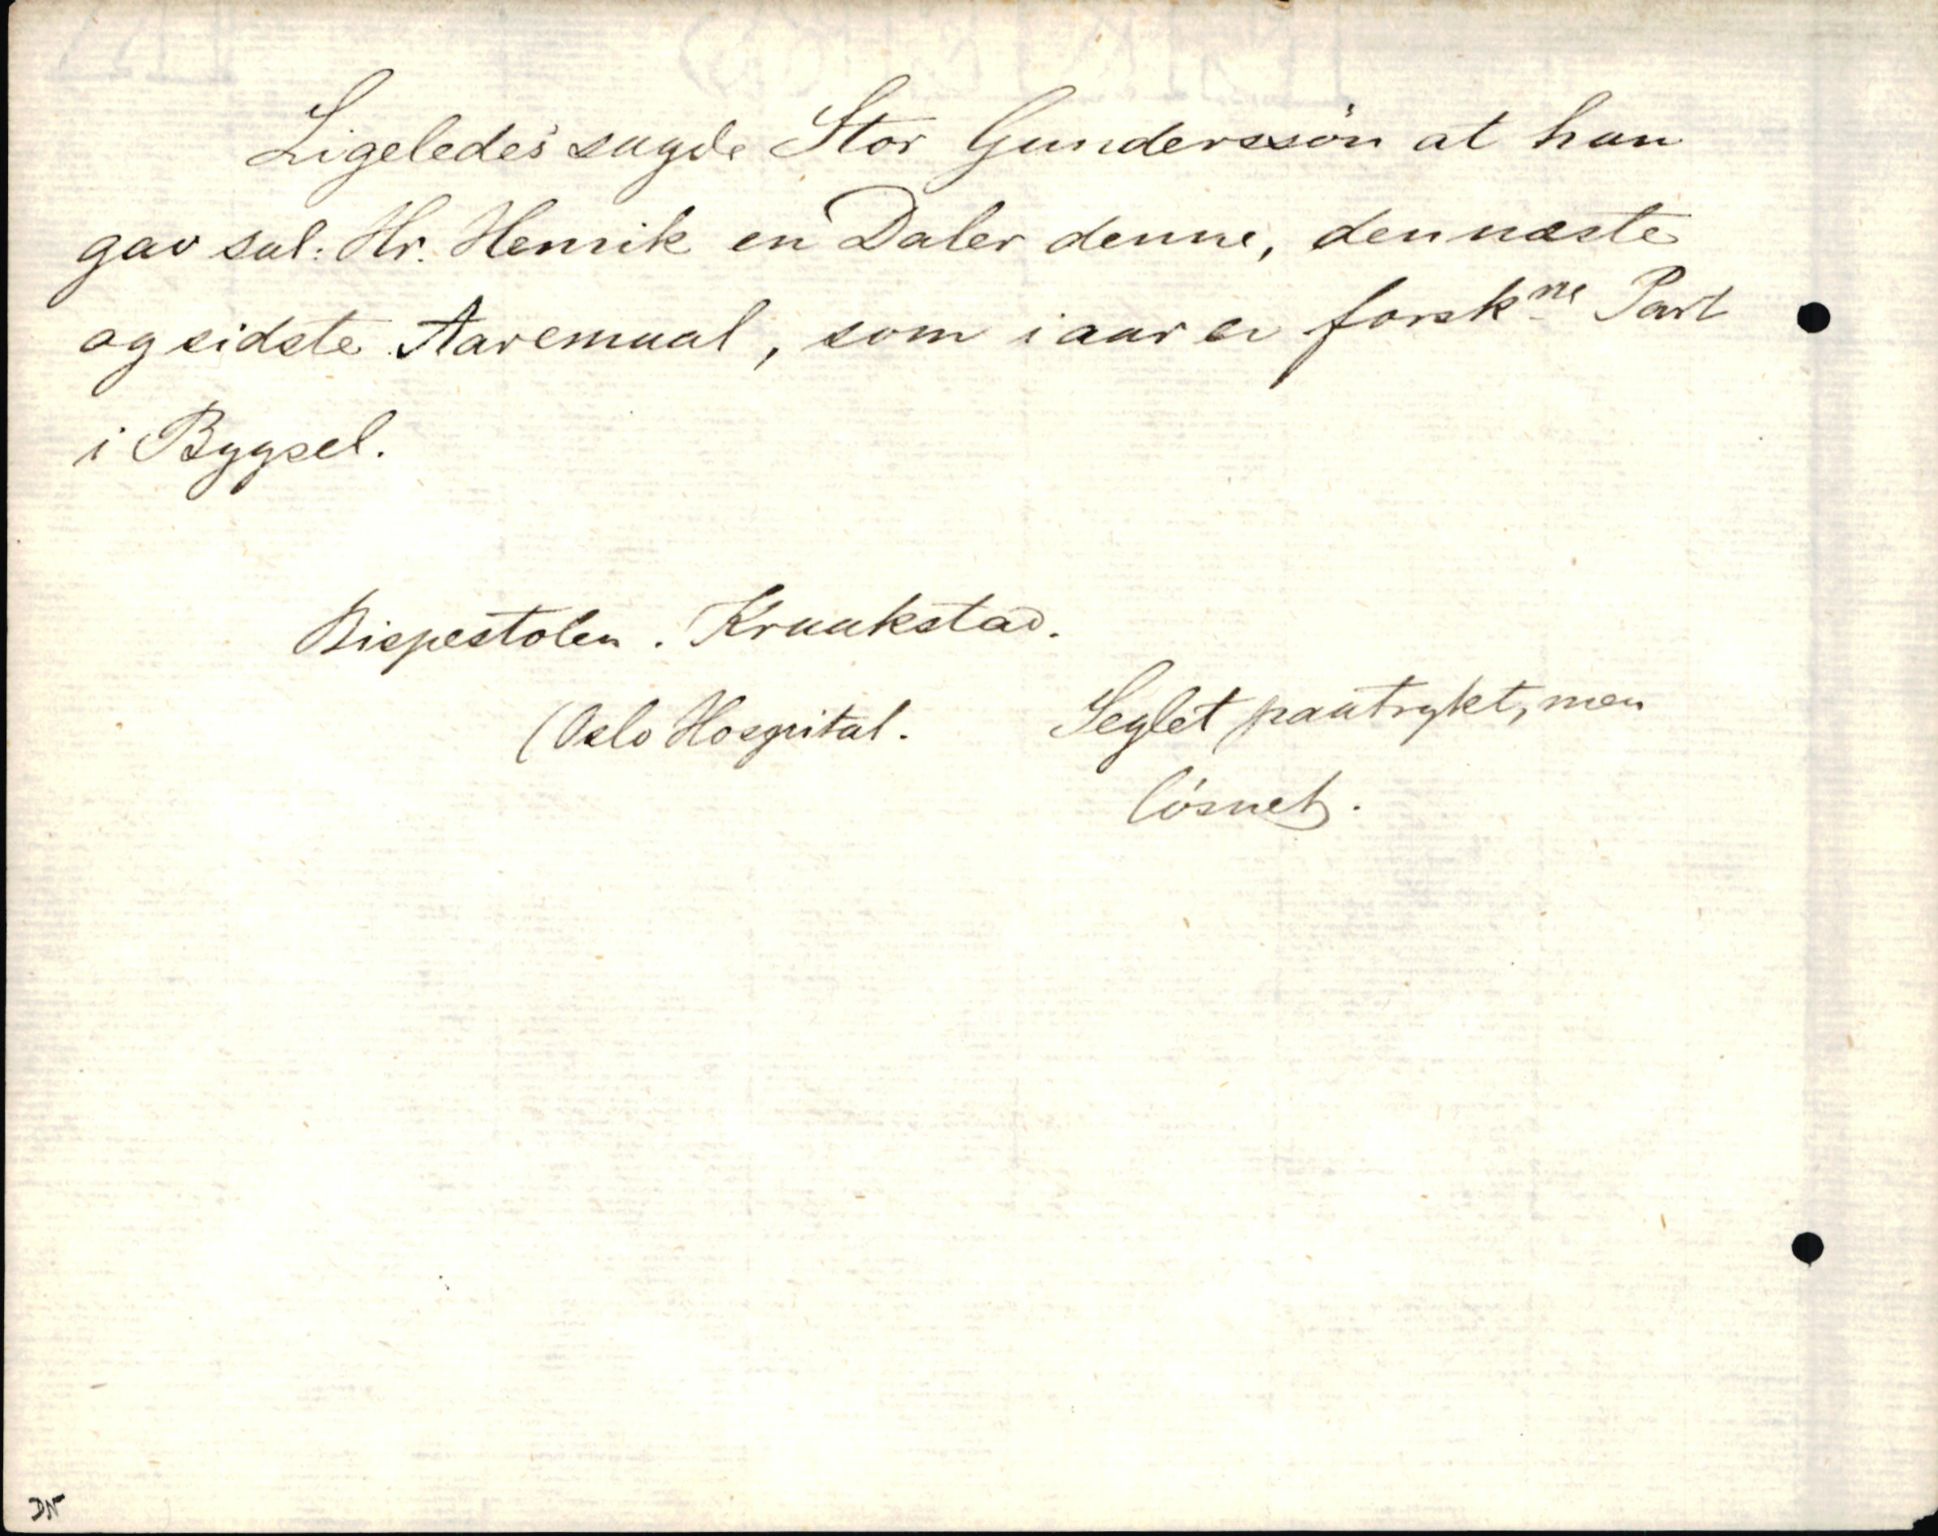 Ligeledes sagde Stor Gunderssön at han
gav sal: Hr. Henrik en Daler denne, den næste
og sidste Aaremaal, som i aar er forsk<sup>ne</sup> Part
i Bygsel.
Bispestolen. Kraakstad.
(Oslo Hospital.
Seglet paatrykt, men
lösnet.
DN